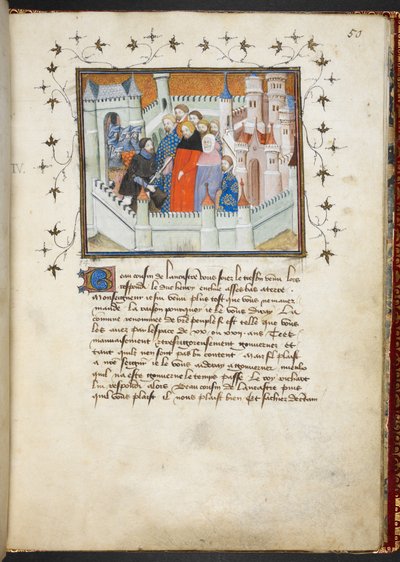 50
IV.
Beau cousin de lancastre vous soiez le tresbn venu lors
respondi le duc henry encline assez bas a terre
Monseigneur ie sui venu plus tost que vous ne mavez
mande la raison pourquoy ie le vous diray La
comune renommee de vre peuple si est telle que vous
les avez par lespace de xx ou xxii ans tres
mauvaisement et tresrigoreusement gouvernez et
tant quilz nen sont pas bn content Mais sil plaist
a nre seigneur ie le vous aideray a gouverner mieulx
quil na este gouverne le temps passe Le roy richart
lui respondi alors Beau cousin de lancastre puis
quil vous plaist il nous plaist bien Et sachiez de certain